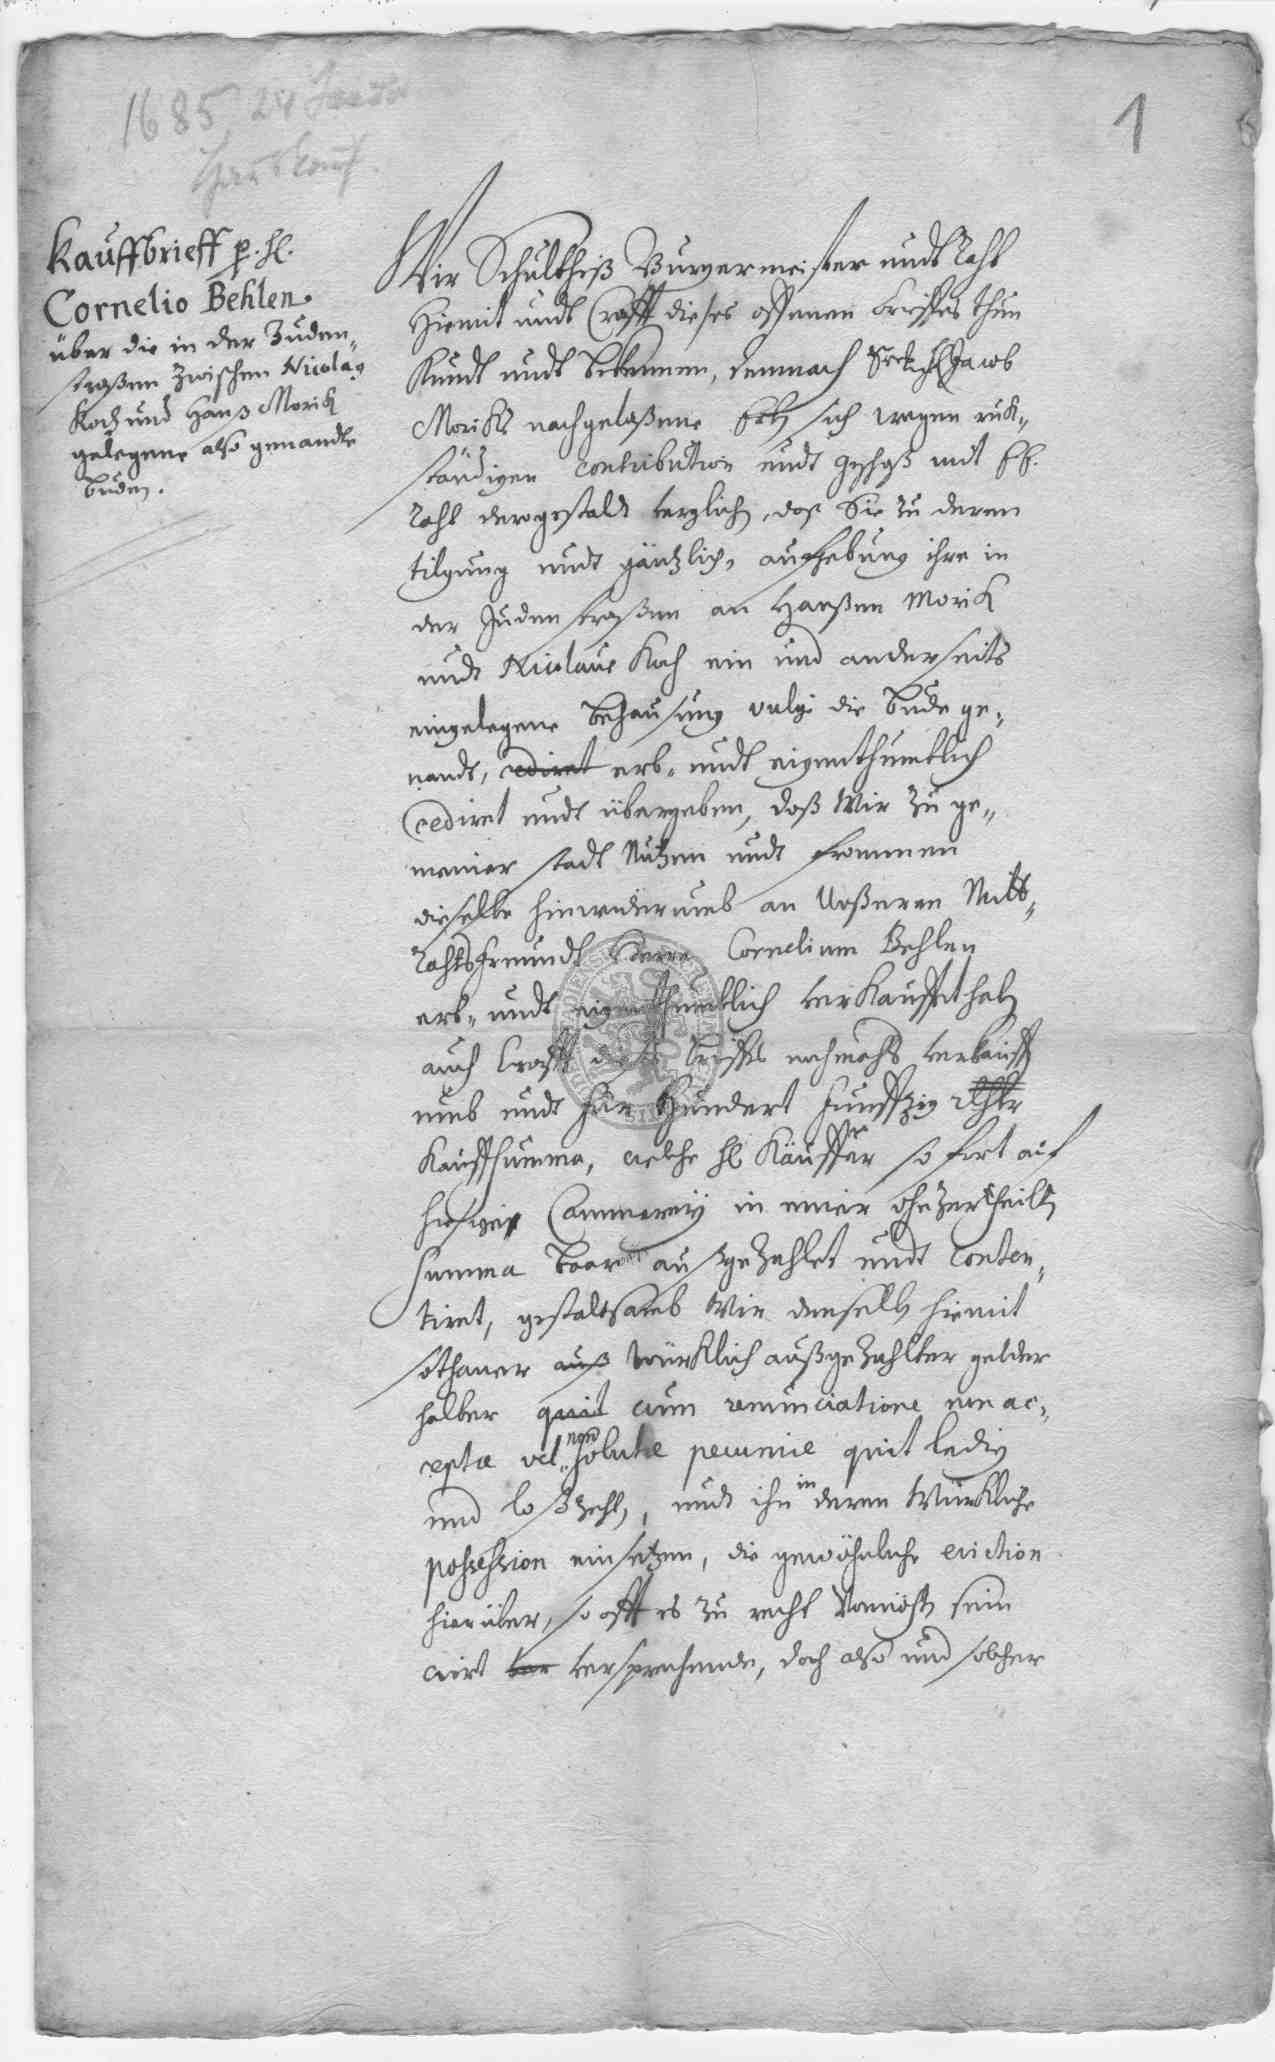 1685 24
Hauskauf
1
Kauffbrieff p. H.
Cornelio Behlen.
über die in der Juden-
straßen zwischen Nicolaq
Koch und Hanß Morik
gelegene also genandte
buden.
Wir Schultheiß Burgermeister undt Raht
Hiemit undt Crafft dieses offenen brieffes thun
Kundt undt bekennen, demnach Jacob
Moriks nachgelaßene Erben sich wegen ruk-
ständigen contribution undt geschoß mit
Raht derogestaldt verglichen, daß Sie zu deren
tilgung undt gäntzlich. auffhebung ihre in
der Juden straßen an Hanßen Morik
undt Nicolaus Koch ein und anderseits
eingelegene behausung vulgo die bude ge-
nandt, cediret erb- undt eigenthumblich
Cediret undt übergeben, daß Wir zu ge-
meiner stadt Nutzen undt frommen
dieselbe hinwiederumb an Unßeren Mitt-
Rahtsfreundt Herren Cornelium Behlen
erb- undt eigenthumblich verkaufft haben
auch krafft dieses brieffes nochmahls verkauffen
umb undt für Hundert funffzig Rthlr
Kauffsumma, welche H. Käuffer so fort auf
hiesiger Cammerey in einer ohnzertheilten
summa baar außgezahlet undt conten-
tiret, gestaltsamb Wir denselben hiemit
sothaner auß würklich außgezahlter gelder
halber quit cum renunciatione non ac-
ceptæ vel non solutæ pecuniæ quit ledig
und loßzehlen, undt ihn in deren Würkliche
possession einsetzen, die gewöhnliche eviction
hierüber, so offt es zu recht Vonnöhten sein
wirt ver versprechende, doch also und solcher